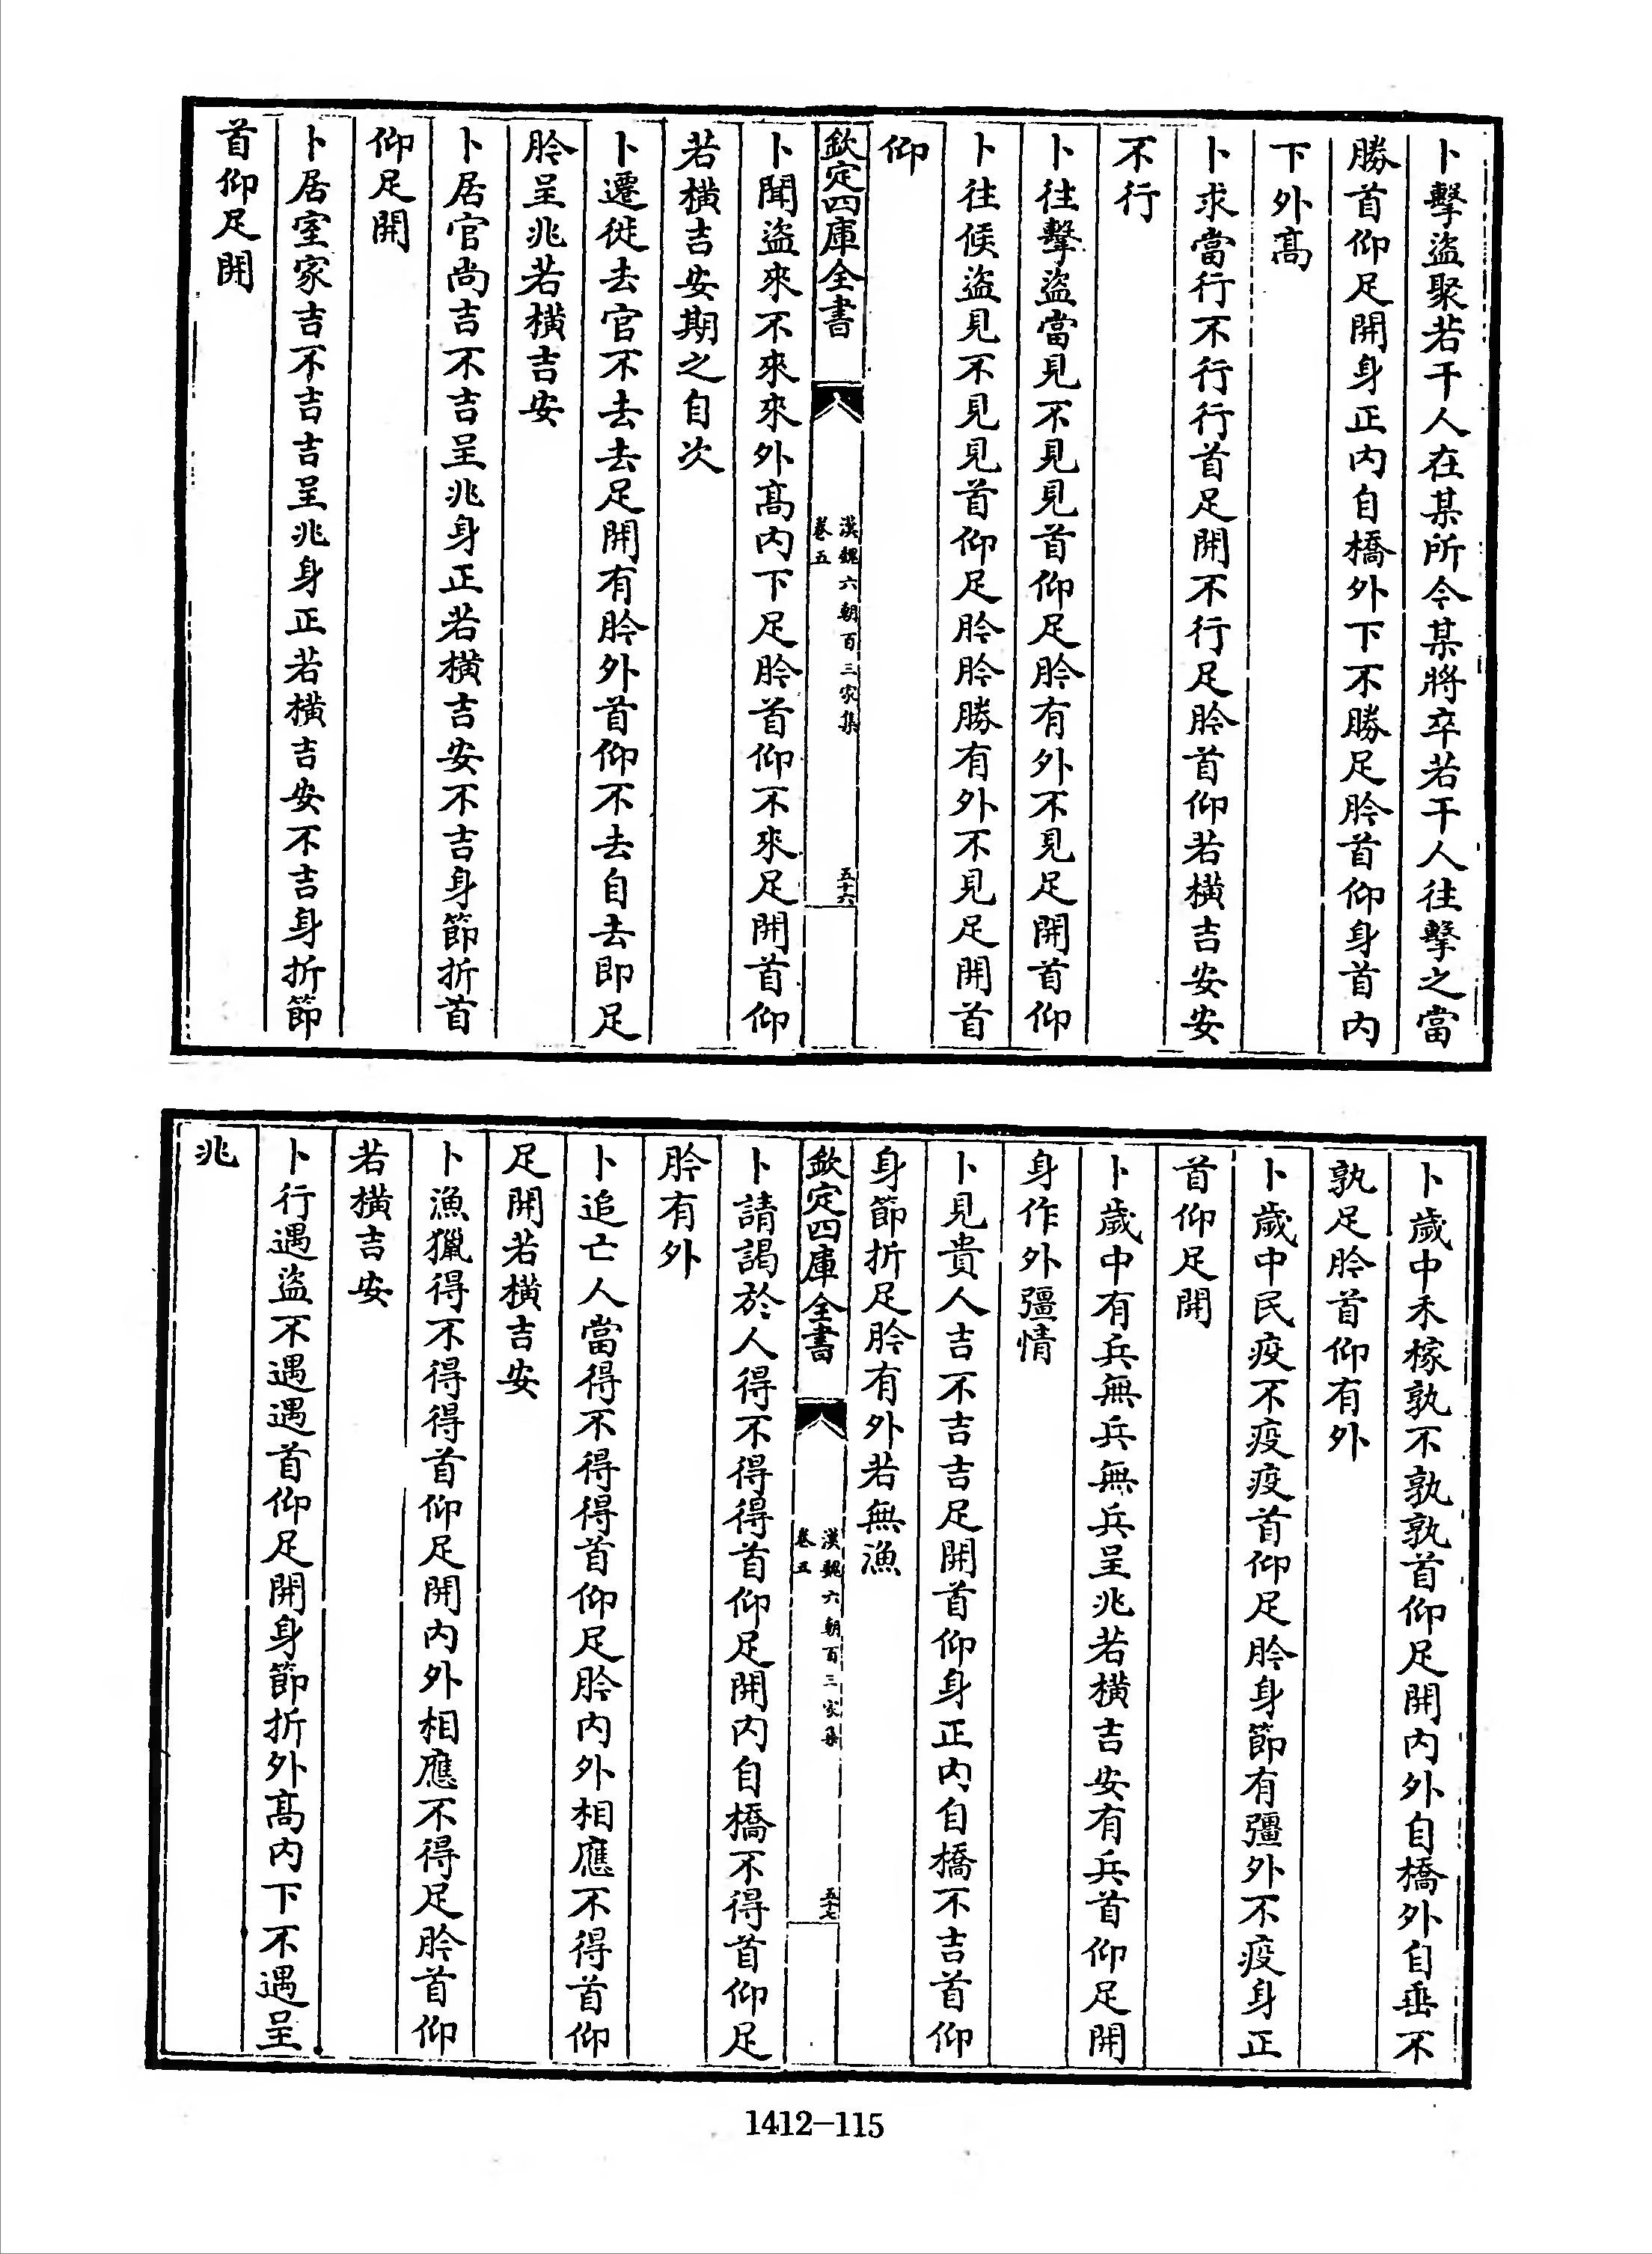 卜擊盜聚若干人在某所今某將卒若干人往擊之當
勝首仰足開身正内自橋外下不勝足肣首仰身首内
下外高
卜求當行不行行首足開不行足肣首仰若橫吉安安
不行
卜往擊盜當見不見見首仰足肣有外不見足開首仰
卜往候盜見不見見首仰足肣肣勝有外不見足開首
仰
欽定四庫全書
漢魏六朝百三家集
卷五
五十六
卜聞盜來不來來外高内下足肣首仰不來足開首仰
若橫吉安期之自次
卜遷徙去官不去去足開有肣外首仰不去自去即足
肣呈兆若橫吉安
卜居官尚吉不吉呈兆身正若橫吉安不吉身節折首
仰足開
卜居室家吉不吉吉呈兆身正若橫吉安不吉身折節
首仰足開
卜歲中禾稼孰不孰孰首仰足開内外自橋外自垂不
孰足肣首仰有外
卜歲中民疫不疫疫首仰足肣身節有彊外不疫身正
首仰足開
卜歲中有兵無兵無兵呈兆若橫吉安有兵首仰足開
身作外彊情
卜見貴人吉不吉吉足開首仰身正内自橋不吉首仰
身節折足肣有外若無漁
欽定四庫全書
漢魏六朝百三家集
卷五
五十七
卜請謁於人得不得得首仰足開内自橋不得首仰足
肣有外
卜追亡人當得不得得首仰足肣内外相應不得首仰
足開若橫吉安
卜漁獵得不得得首仰足開内外相應不得足肣首仰
若橫吉安
卜行遇盜不遇遇首仰足開身節折外高内下不遇呈
兆
1412-115